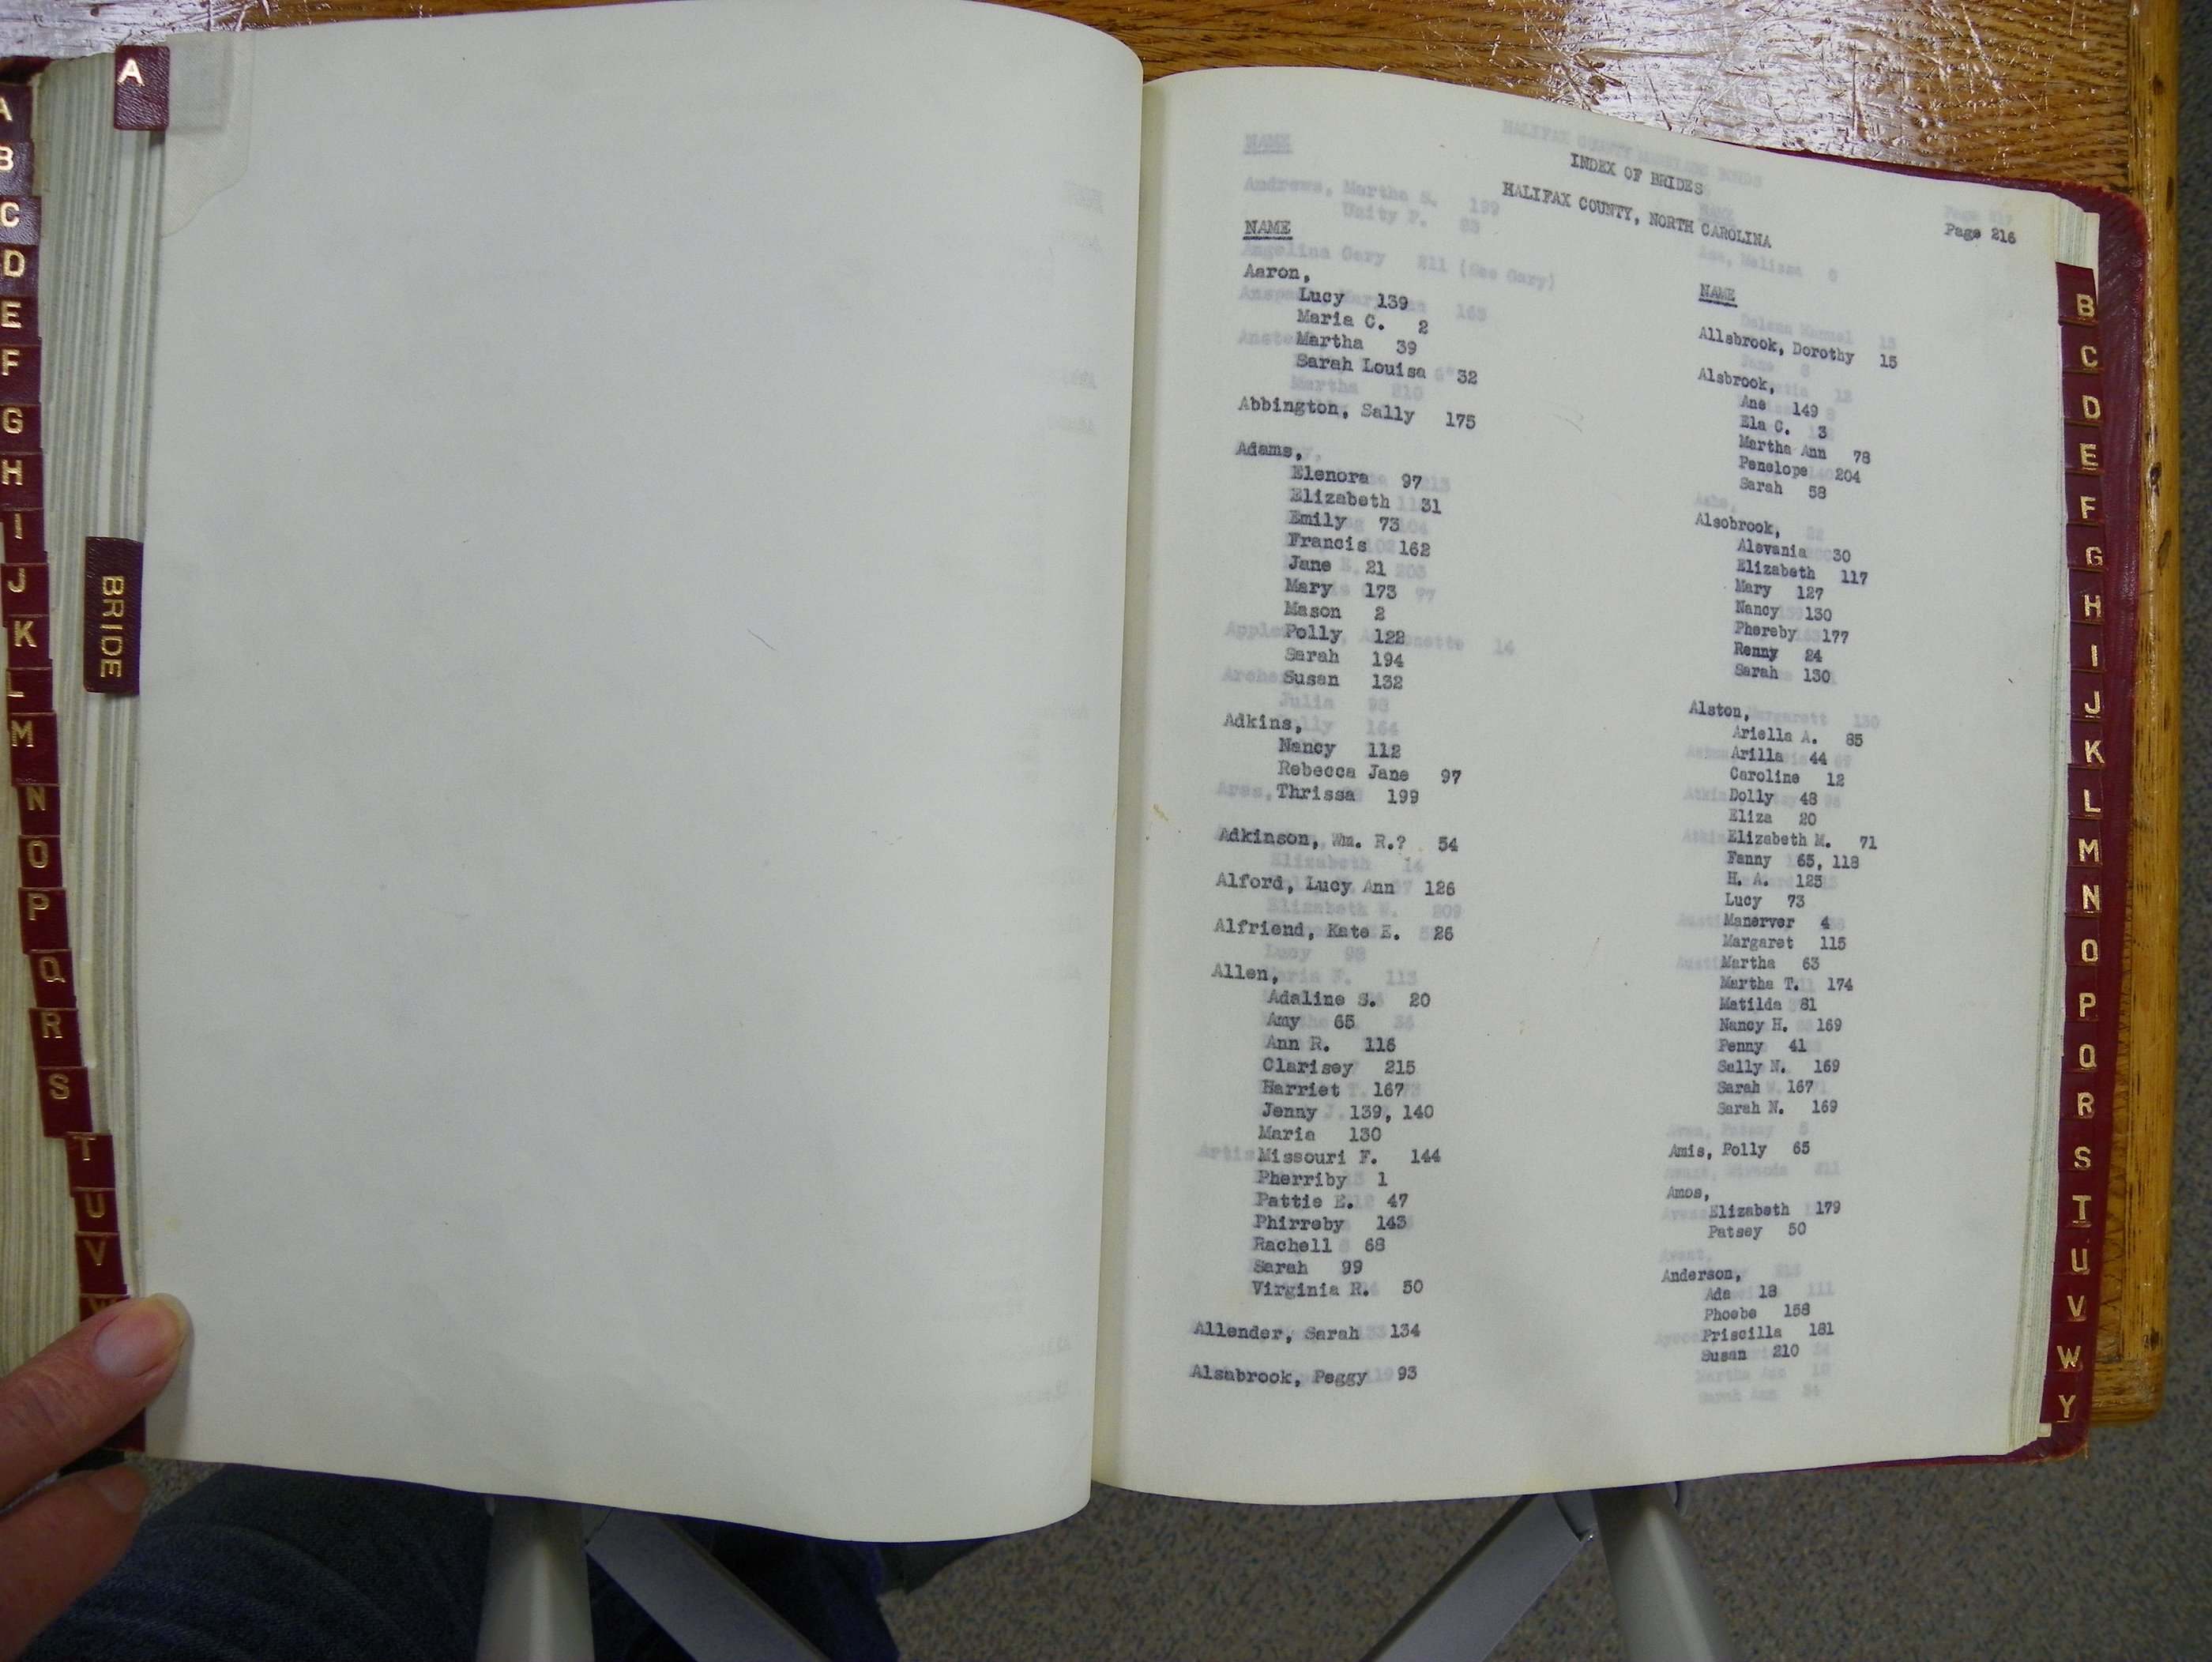 A
A
B
C
D
E
F
G
H
I
J
K
L
M
N
O
P
Q
R
S
T
U
V
W
BRIDE
INDEX OF BRIDES
HALIFAX COUNTY, NORTH CAROLINA
Page 216
NAME
Aaron,
Lucy 139
Maria C. 2
Martha 39
Sarah Louisa 32
Abbington, Sally 175
Adams,
Elenora 97
Elizabeth 31
Emily 73
Francis 162
Jane 21
Mary 173
Mason 2
Polly 122
Sarah 194
Susan 132
Adkins,
Nancy 112
Rebecca Jane 97
Thrissa 199
Adkinson, Wm. R.? 54
Alford, Lucy Ann 126
Alfriend, Kate E. 26
Allen,
Adaline S. 20
Amy 65
Ann R. 116
Clarisey 215
Harriet 167
Jenny 139, 140
Maria 130
Missouri F. 144
Pherriby 1
Pattie E. 47
Phirreby 143
Rachell 68
Sarah 99
Virginia R. 50
Allender, Sarah 134
Alsabrook, Peggy 93
NAME
Allsbrook, Dorothy 15
Alsbrook,
Ane 149
Ela C. 3
Martha Ann 78
Penelope 204
Sarah 58
Alsobrook,
Alevania 30
Elizabeth 117
Mary 127
Nancy 130
Phereby 177
Renny 24
Sarah 130
Alston,
Ariella A. 85
Arilla 44
Caroline 12
Dolly 48
Eliza 20
Elizabeth M. 71
Fanny 65, 118
H. A. 125
Lucy 73
Manerver 4
Margaret 115
Martha 63
Martha T. 174
Matilda 81
Nancy H. 169
Penny 41
Sally N. 169
Sarah 167
Sarah N. 169
Amis, Polly 65
Amos,
Elizabeth 179
Patsey 50
Anderson,
Ada 18
Phoebe 158
Priscilla 181
Susan 210
B
C
D
E
F
G
H
I
J
K
L
M
N
O
P
Q
R
S
T
U
V
W
Y